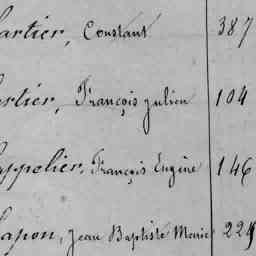 artier, Constant 387
rtier, François Julien 104
appelier, François Eugène 146
apon, Jean Baptiste Marie 224